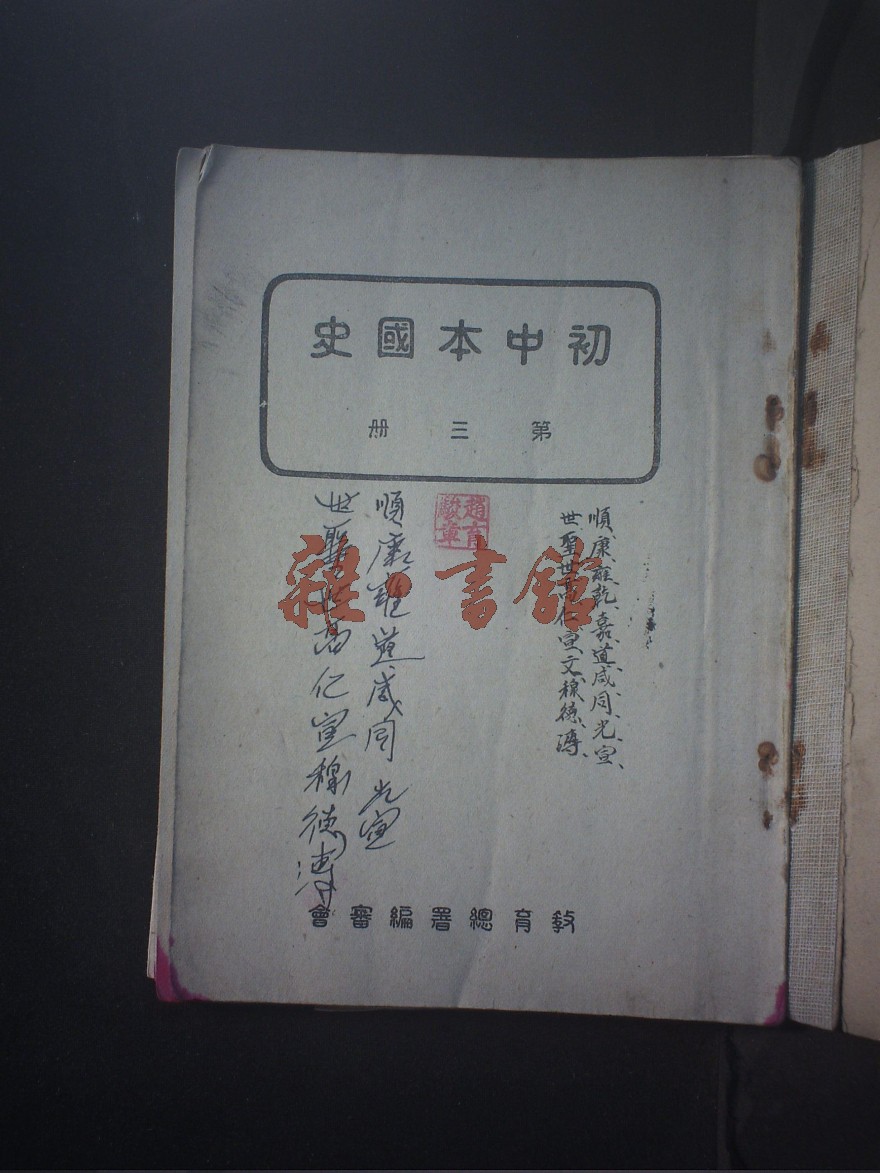 初中本國史
第三册
趙育
駿章
順康雍乾嘉道咸同光宣
世聖世仁宣文穆德溥
順康雍道咸同光宣
世聖世高仁宣穆德溥
雜·書館
教育總署編審會